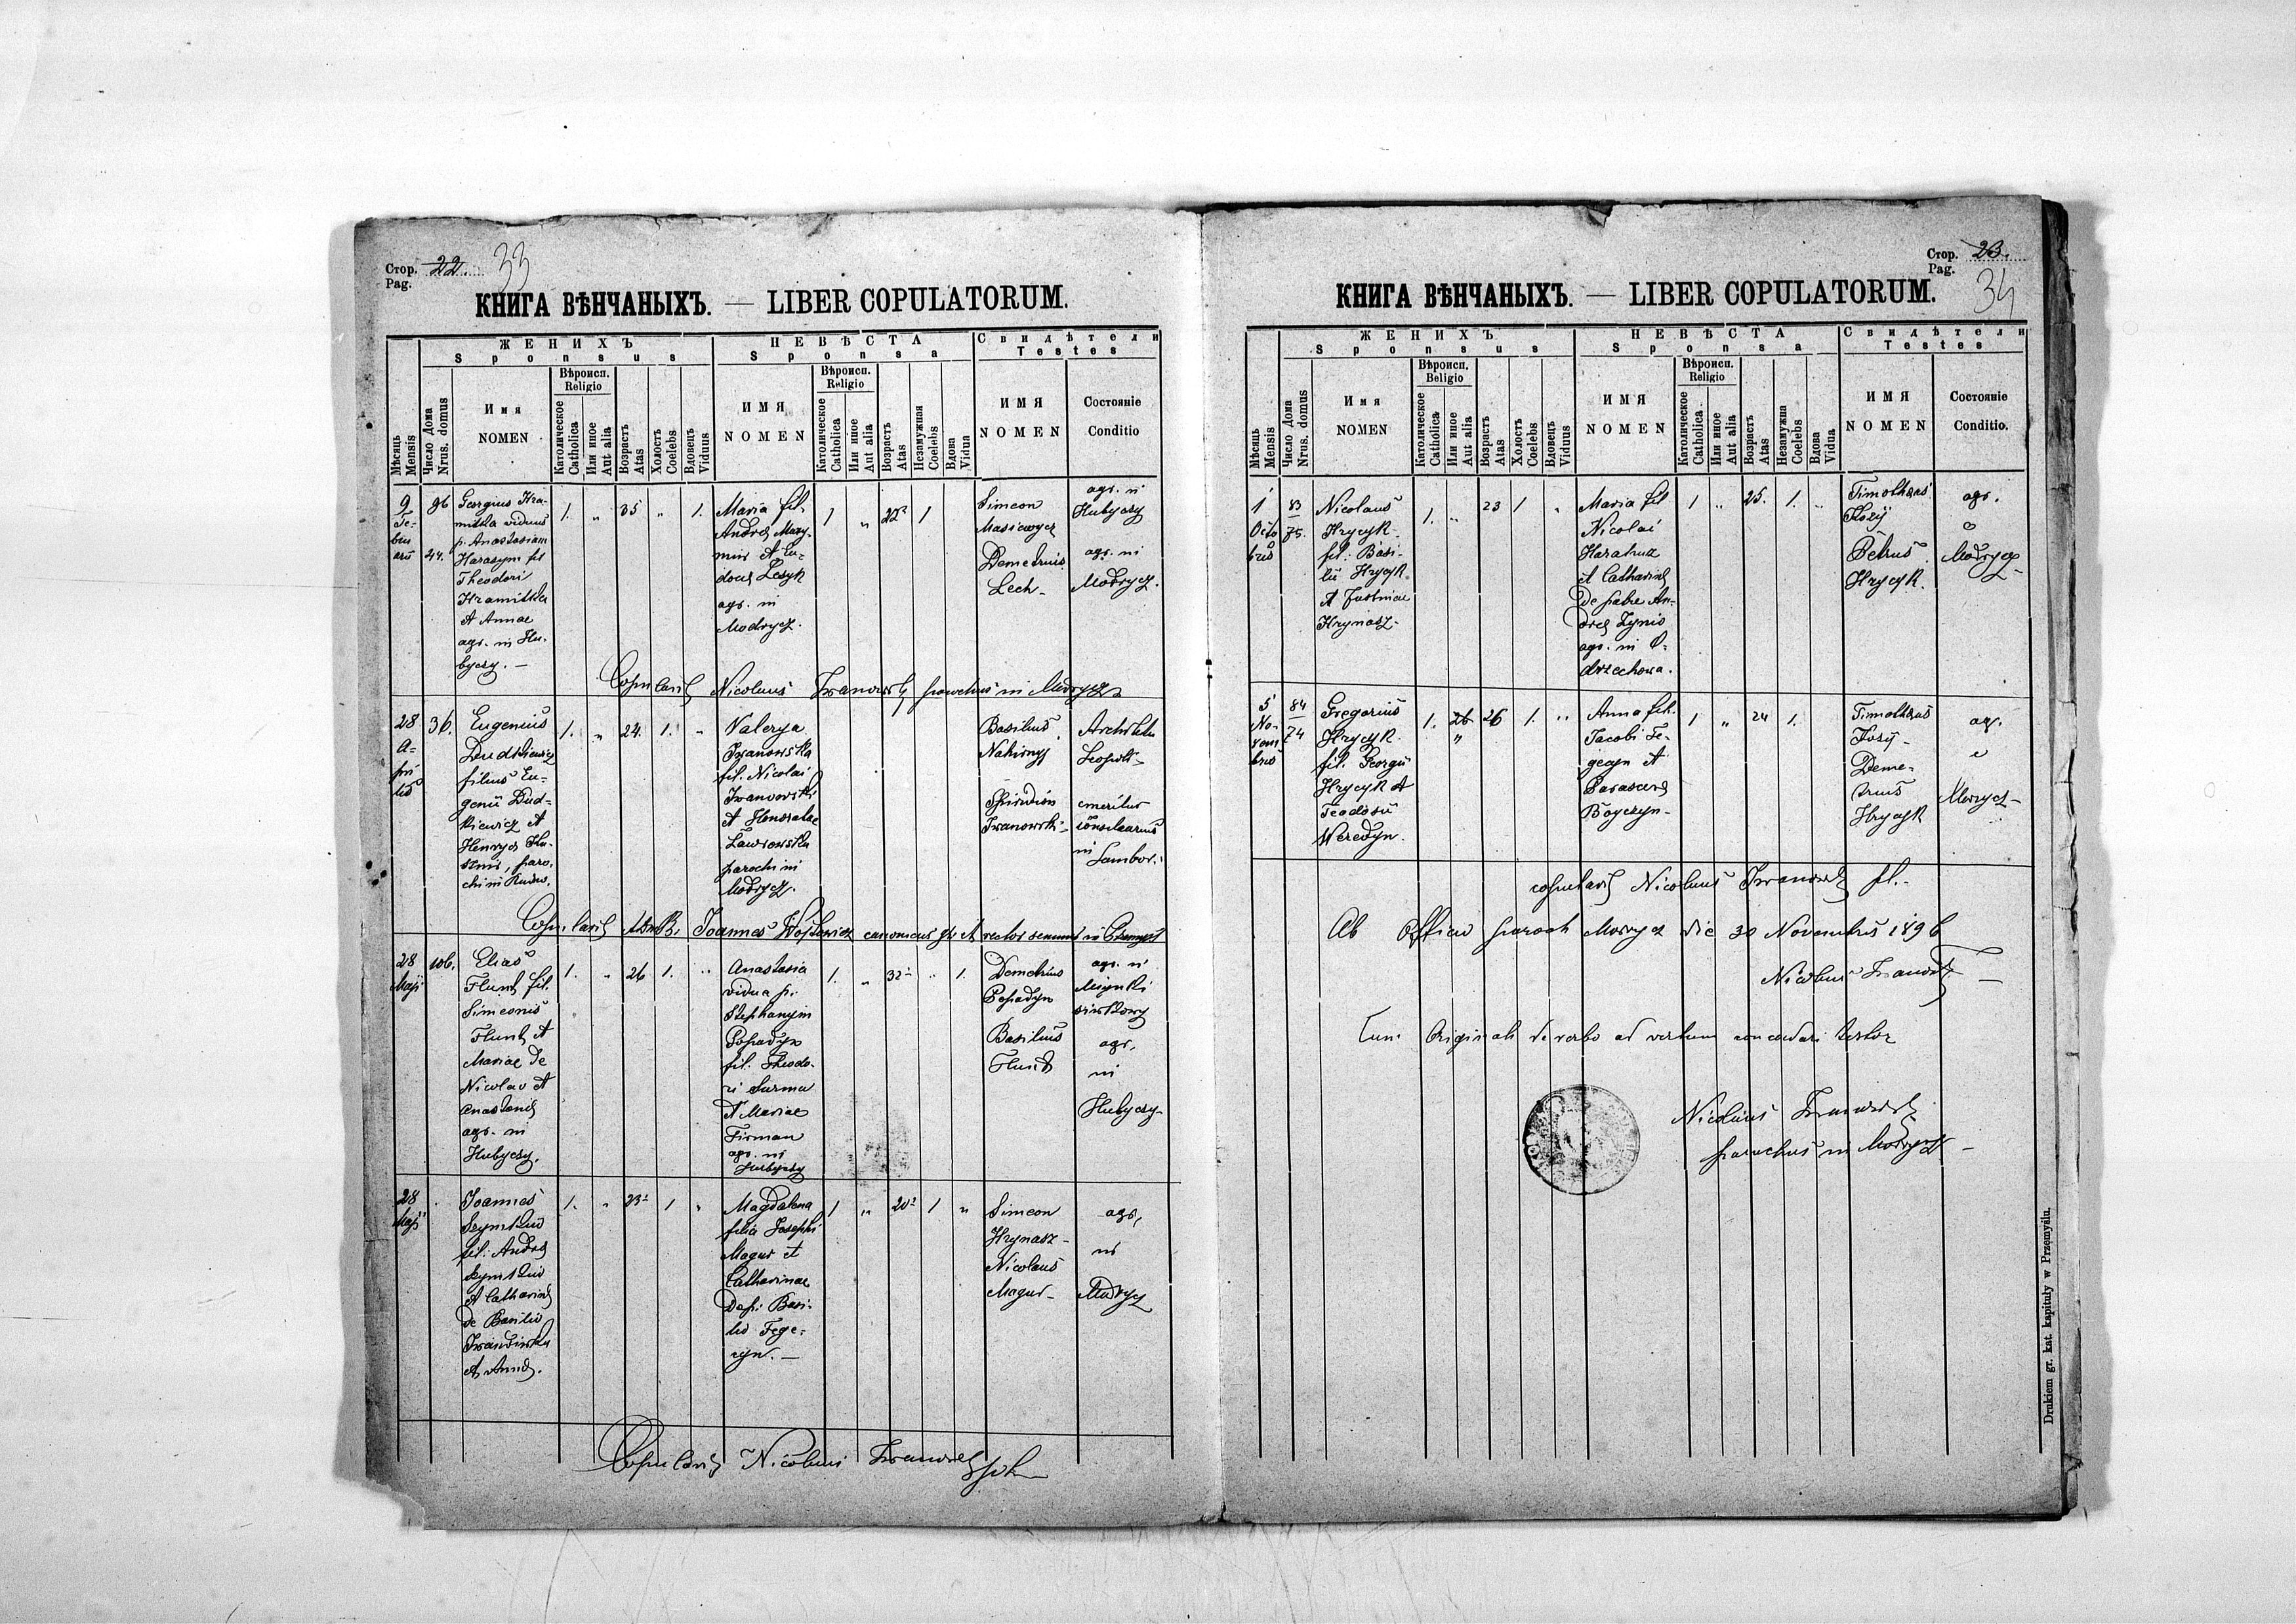 Стор. 22. 33
Pag.
КНИГА ВѢНЧАНЫХЪ. — LIBER COPULATORUM.
Мѣсяць
Mensis
Число Дома
Nrus. domus
ЖЕНИХЪ
Sponsus
Имя
NOMEN
Вѣроисп.
Religio
Католическое
Catholica
Или иное
Aut alia
Возрастъ
Atas
Холостъ
Coelebs
Вдовецъ
Viduus
НЕВѢСТА
Sponsa
ИМЯ
NOMEN
Вѣроисп.
Religio
Католическое
Catholica
Или иное
Aut alia
Возрастъ
Atas
Незамужная
Coelebs
Вдова
Vidua
Свидѣтели
Testes
ИМЯ
NOMEN
Состояніе
Conditio
9
Fe-
bru
arii
96
44.
Georgius Hra-
mitka viduus
p. Anastasiam
Harasym fil
Theodori
Hramitka
et Annae
agr. in Hu-
byczy. —
1.
"
35
"
1.
Maria fil.
Andreae
Lesyk
agr. in
Modrycz.
1
"
22
1
Simeon
Masiewycz
Demetrius
Lech -
agr. in
Hubyczy
agr. in
Modrycz.
Copulavit Nicolaus Iwanowski parochus in Modrycz
28
A-
pri
lis
36.
Eugenius
Dudkiewicz
filius Eu-
genii Dud-
kiewicz et
Henryca
paro.
chi in
1.
"
24.
1.
"
Valerya
Iwanowska
fil. Nicolai
Iwanowski
et Honoratae
Ławrowska
parochi in
Modrycz.
Basilius
Nahirnyj
Spiridion
Iwanowski
Architectus
Leopoli -
emeritus
in Sambor.
Copulavit Joannes canonicus et rector
28
Maji
106.
Elias
Flunt fil.
Simeonis
Flunt et
Mariae de
Nicolao et
Anastasia
agr. in
Hubyczy.
1.
"
26
1.
"
Anastasia
vidua p.
Stephanum
Popadyn
fil. Theodo-
ri Surma
et Mariae
Firman
agr. in
Hubyczy
1.
"
32
"
1.
Demetrius
Popadyn
Basilius
Flunt
agr. in
agr.
in
Hubyczy
28
Maji
Joannes
fil. Andreae
et Catharinae
de Basilio
et Anna.
1.
"
23
1
"
Magdalena
filia Josephi
Magur et
Catharinae
de p. Basi-
lio Fege-
cyn. —
1
"
20
1
"
Simeon
Hrynasz -
Nicolaus
Magur -
agr,
in
Modrycz
Copulavit Nicolaus Iwanowski
Стор. 23. 34
Pag.
КНИГА ВѢНЧАНЫХЪ. — LIBER COPULATORUM.
Мѣсяць
Mensis
Число Дома
Nrus. domus
ЖЕНИХЪ
Sponsus
Имя
NOMEN
Вѣроисп.
Religio
Католическое
Catholica
Или иное
Aut alia
Возрастъ
Atas
Холостъ
Coelebs
Вдовецъ
Viduus
НЕВѢСТА
Sponsa
ИМЯ
NOMEN
Вѣроисп.
Religio
Католическое
Catholica
Или иное
Aut alia
Возрастъ
Atas
Незамужна
Coelebs
Вдова
Vidua
Свидѣтели
Testes
ИМЯ
NOMEN
Состояніе
Conditio.
1
Octo
bris
83
75.
Nicolaus
Hrycyk
fil. Basi-
lii Hrycyk
et Justinae
Hrynasz -
1.
"
23
1
"
Maria fil
Nicolai
et Catharinae
de patre An-
dreae Zynio
agr. in
1
"
25.
1.
"
Timotheus
Kozij
Petrus
Hrycyk.
agr.
Modrycz
5
No-
vem
bris
84
74
Gregorius
Hrycyk
fil. Georgii
Hrycyk et
Teodosii
Weredyn.
1.
26
"
26
1.
"
Anna fil.
Jacobi Fe-
gecyn et
Parasceva
Boyczyn -
1
"
24
1.
Timotheus
Kozij -
Deme-
trius
Hrycyk
agr.
Modrycz -
copulavit Nicolaus Iwanowski
Ab Officio paroch Modrycz die 30 Novembris 1896
Nicolaus Iwanowski
Cum Originali de verbo ad verbum concordare testor
Nicolaus Iwanowski
parochus in Modrycz
Drukiem gr. kat. kapituły w Przemyślu.